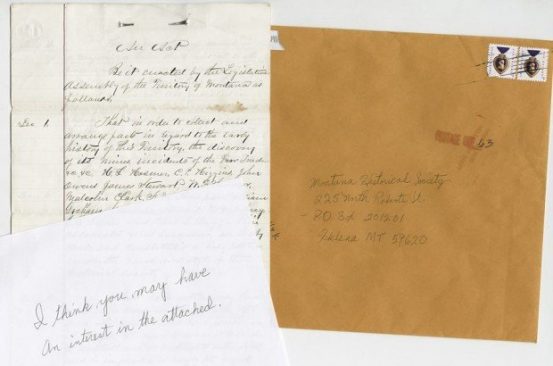 An Act
Be it enacted by the Legislative
Assembly of the Territory of Montana as
follows.
Sec 1.
That in order to collect and
arrange facts in regard to the early
history of this Territory, the discovery
of its mines incidents of the Fur Trade
&c &c. H. L. Hosmer C. P. Higgins John
Owens James Stewart
Malcolm Clark
I think you may have
An interest in the attached.
POSTAGE DUE 63
Montana Historical Society
225 North Roberts St.
PO Bx 201201
Helena MT 59620